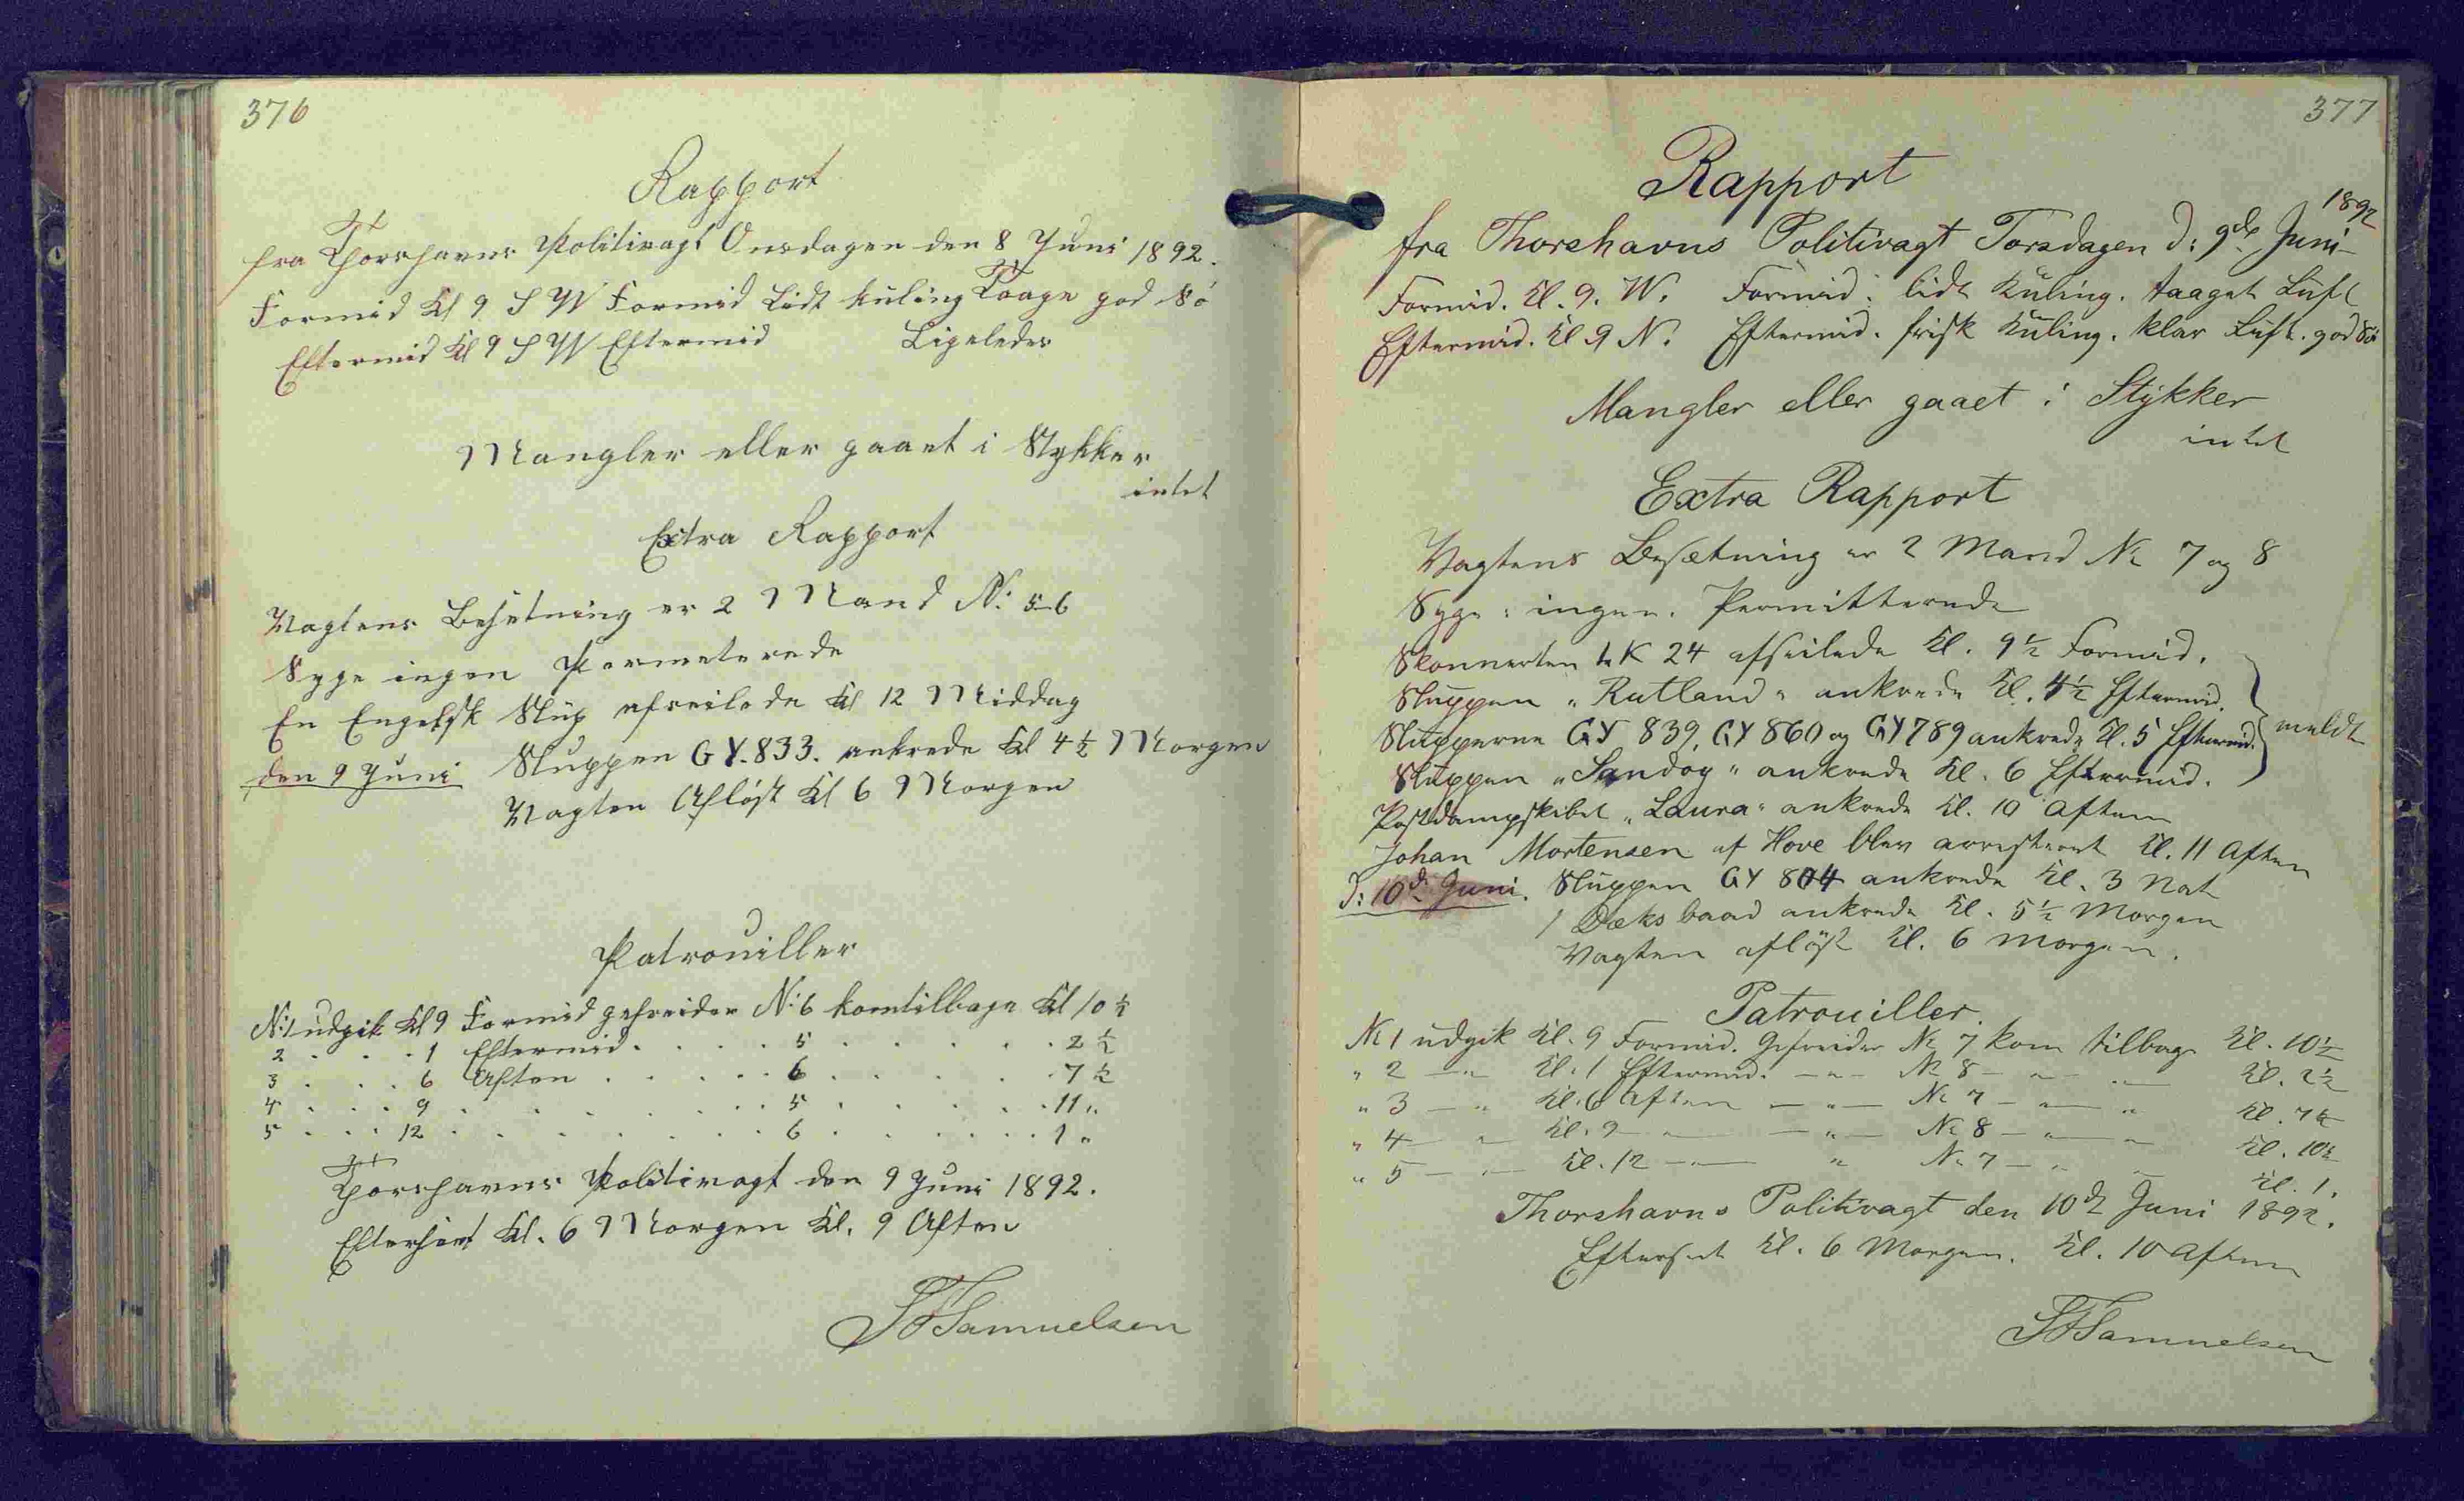 376
Rapport
fra Thorshavns Politivagt Onsdagen den 8 Juni 1892.
Formid Kl 9 S W Formid Lidt kuling Taage god Sö
Eftermid Kl 9 S W Eftermid Ligeledes
Mangler eller gaaet i Stykker
intet
Extra Rapport
Vagtens Besetning er 2 Mand N: 5-6
Syge ingen Permeterede
En Engelsk Slup afseilede Kl 12 Middag
den 9 Juni Sluppen GY. 833. ankrede Kl 4½ Morgen
Vagten Aflöst Kl 6 Morgen
Patrouiller
N:1 udgik Kl 9 Formid gefreider N: 6 kom tilbage Kl 10½
2 . . . 1 Eftermid . . . . 5 . . . . . 2½
3 . . . 6 Aften . . . . . 6 . . . . . 7½
4 . . . 9 . . . . . . . 5 . . . . . 11 "
5 . . . 12 . . . . . . . 6 . . . . . 1 "
Thorshavns Politivagt den 9 Juni 1892.
Efterseet Kl. 6 Morgen Kl. 9 Aften
Samuelsen
377
Rapport
fra Thorshavns Politivagt Torsdagen d: 9de Juni 1892
Formid. Kl. 9. W. Formid: lidt Kuling. taaget Luft
Eftermid. Kl 9 N. Eftermid. frisk Kuling. klar Luft. god Sö
Mangler eller gaaet i Stykker
intet
Extra Rapport
Vagtens Besætning er 2 Mand No 7 og 8
Syge: ingen. Permitterede
Skonnerten LK 24 afseilede Kl. 9½ Formid.
Sluppen "Rutland" ankrede Kl. 4½ Eftermid.
Slupperne GY 839, GY 860 og GY 789 ankrede Kl. 5 Eftermid. meldt
Sluppen "Sandoy" ankrede Kl. 6 Eftermid.
Postdampskibet "Laura" ankrede Kl. 10 Aften
Johan Mortensen af Hove blev arresteret Kl. 11 Aften
D: 10de Juni. Sluppen GY 804 ankrede Kl. 3 Nat
1 Dæksbaad ankrede Kl. 5½ Morgen
Vagten aflöst Kl. 6 Morgen.
Patrouiller.
No 1 udgik Kl. 9 Formid. Gefreider No 7 kom tilbage Kl. 10½
" 2 — " — Kl. 1 Eftermid. — " — No 8 — " — " — Kl. 2½
" 3 — " — Kl. 6 Aften — " — No 7 — " — " Kl. 7½
" 4 — " — Kl. 9 — " — — " — No 8 — " — " — Kl. 10½
" 5 — " — Kl. 12 — " — " No 7 — " — Kl. 1.
Thorshavns Politivagt den 10de Juni 1892.
Efterseet Kl. 6 Morgen. Kl. 10 Aften
Samuelsen